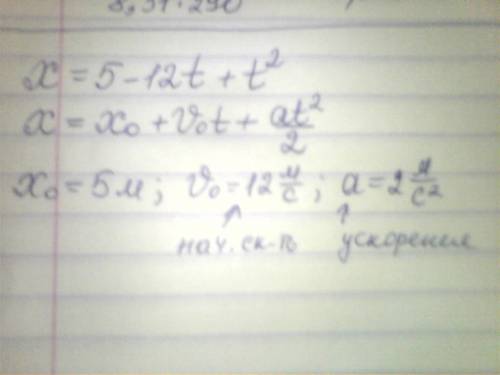 8,31·290
x = 5 - 12t + t²
x = x₀ + v₀t + at²/2
x₀ = 5м; v₀ = 12 м/с; a = 2 м/с²
нач. ск-ть ускорение